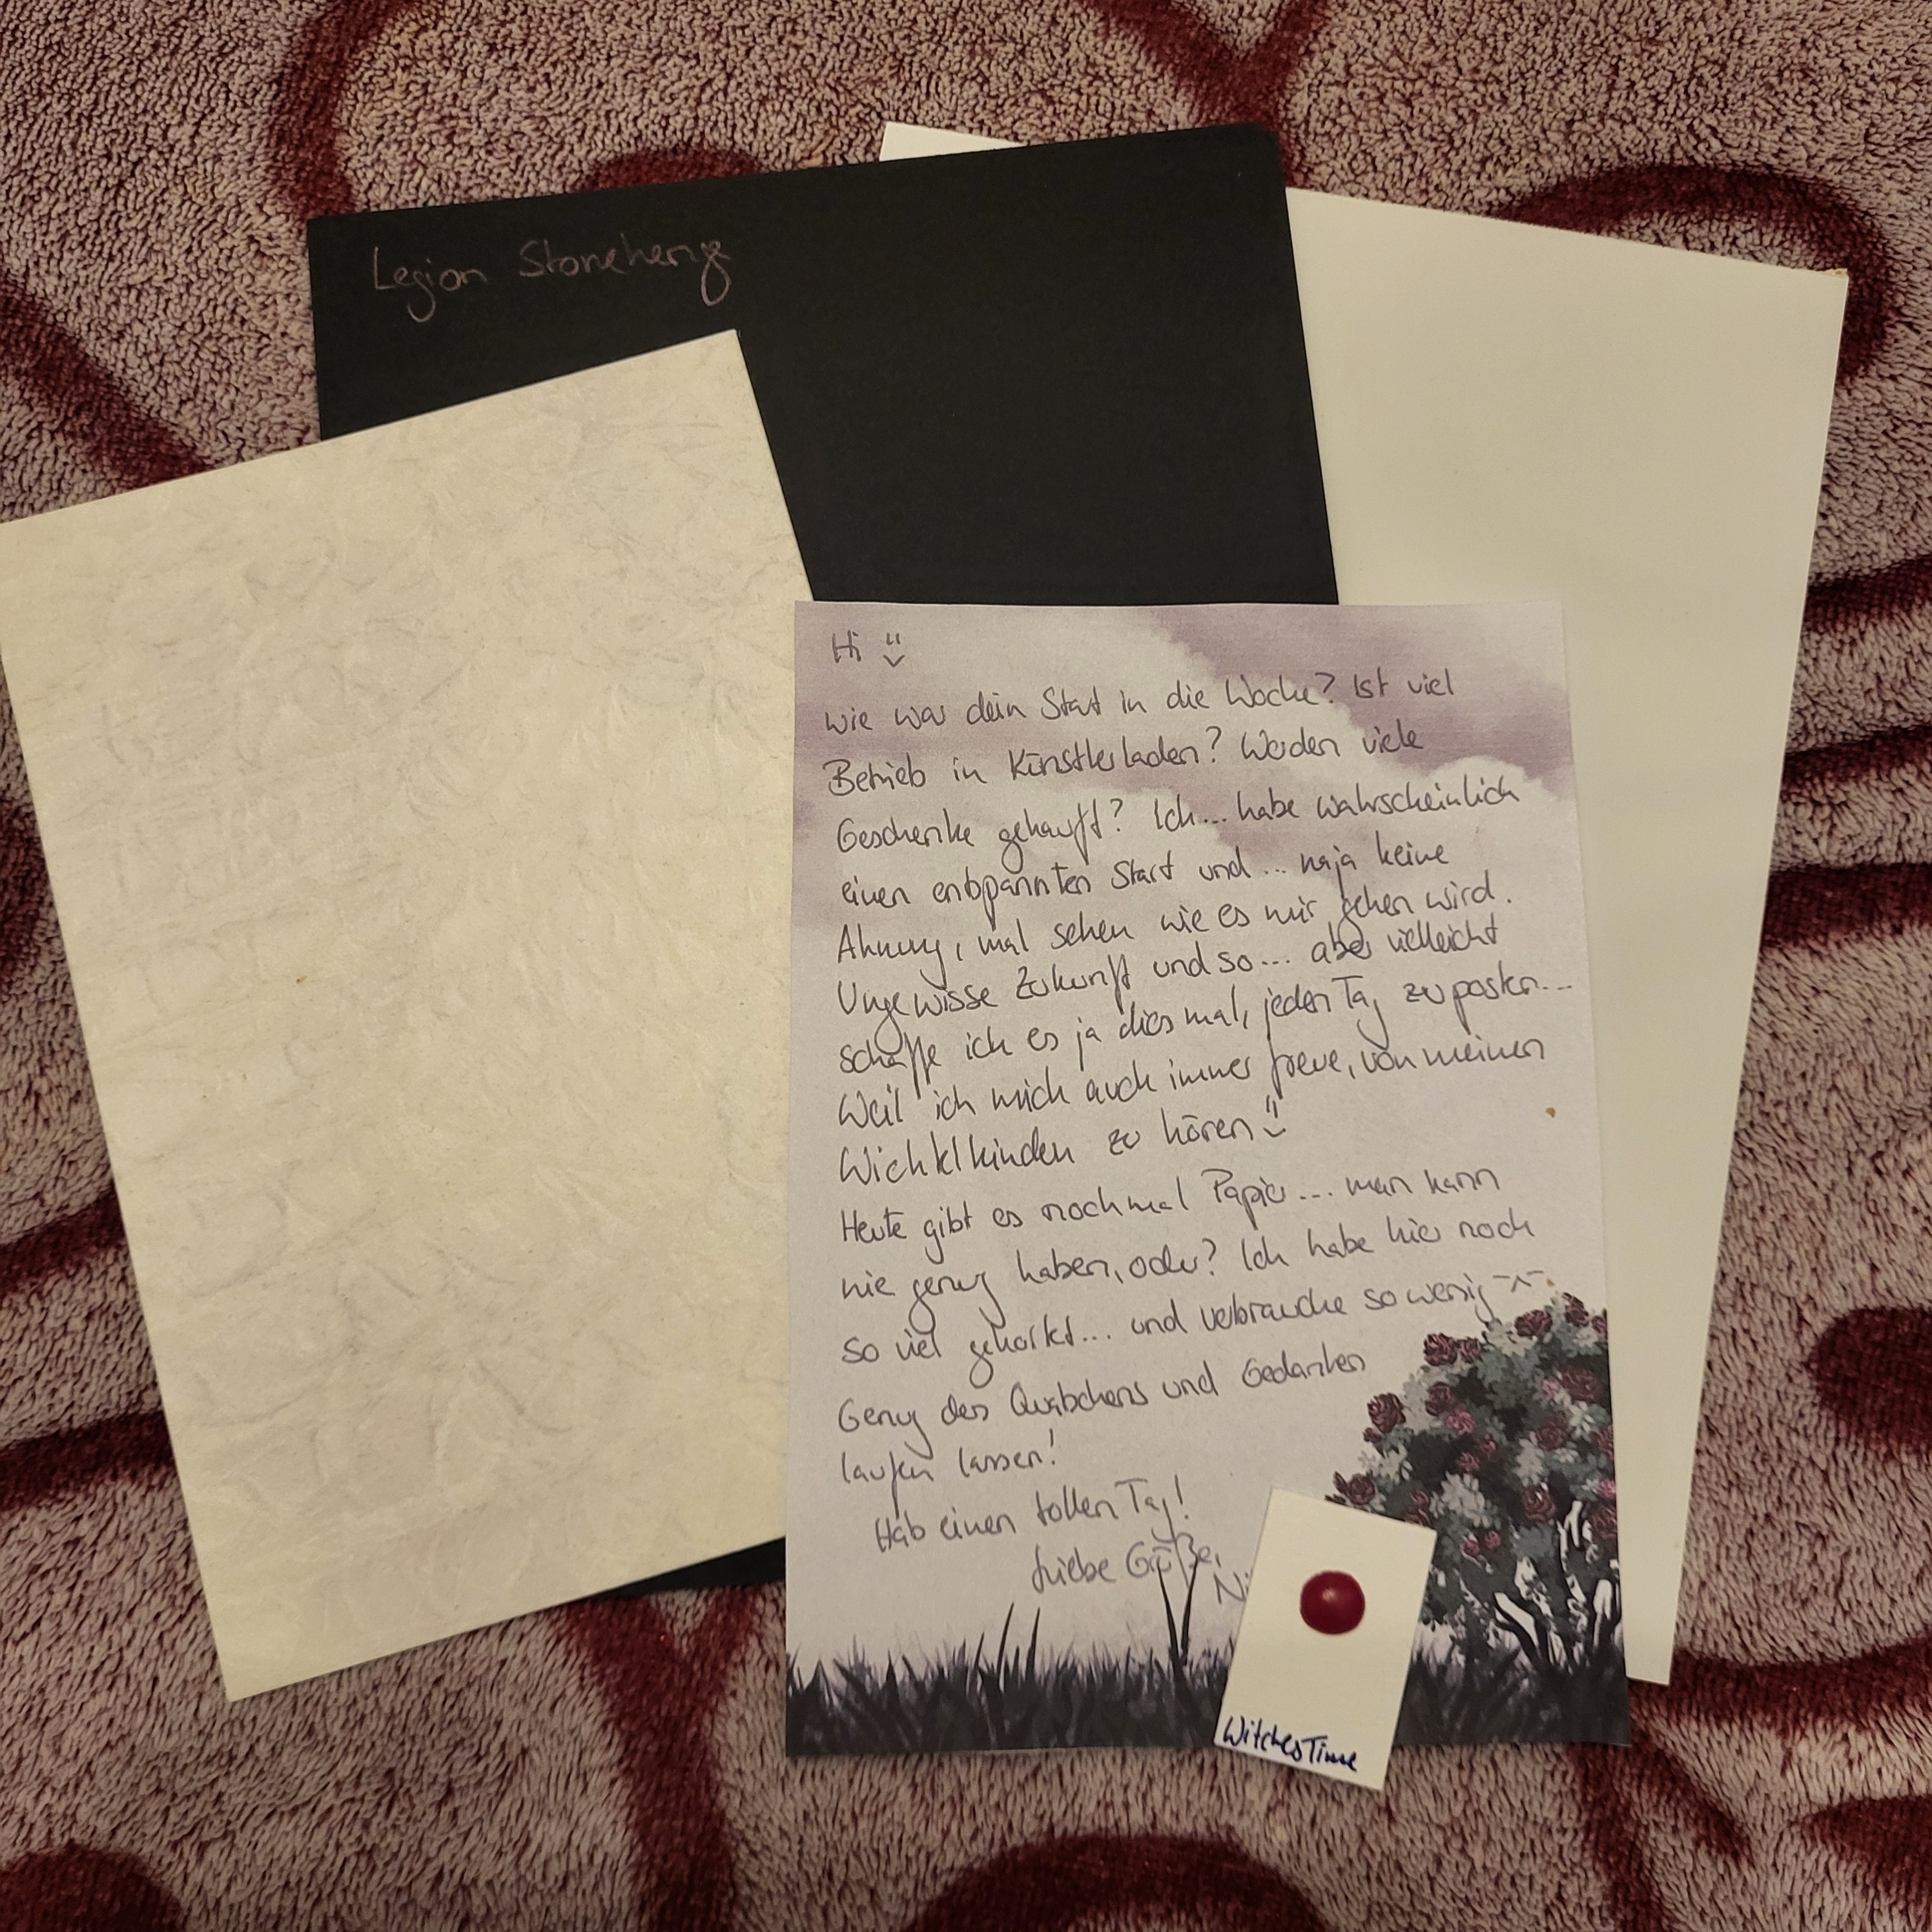 Legion Stonehenge
Hi
wie war dein Start in die Woche? Ist viel
Betrieb in Künstlerladen? Werden viele
Geschenke gekauft? Ich... habe wahrscheinlich
einen entspannten Start und... naja keine
Ahnung, mal sehen wie es mir gehen wird.
Ungewisse Zukunft und so... aber vielleicht
schaffe ich es ja dies mal, jeden Tag zu posten...
Weil ich mich auch immer freue, von meinen
Wichtelkindern zu hören
Heute gibt es nochmal Papier... man kann
nie genug haben, oder? Ich habe hier noch
so viel gehortet... und verbrauche so wenig ^^
Genug des Quatschens und Gedanken
laufen lassen!
Hab einen tollen Tag!
Liebe Grüße,
WitchesTime